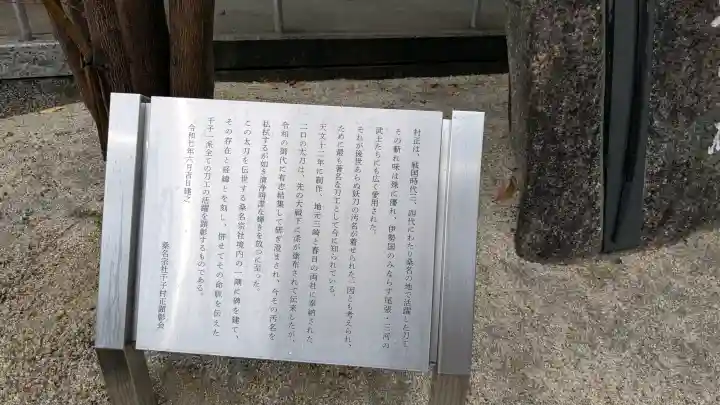 村正は、戦国時代三、四代にわたり桑名の地で活躍した刀工。
その斬れ味は殊に優れ、伊勢国のみならず尾張・三河の
武士たちにも広く愛用された。
それが後世あらぬ妖刀の汚名が着せられた一因とも考えられ、
ために最も著名な刀工として今に知られている。
天文十二年に制作、地元三崎と春日の両社に奉納された
二口の太刀は、先の大戦下に漆が塗布されて伝来したが、
令和の御代に有志結集して研ぎ澄まされ、今その汚名を
払拭するが如き清浄明潔な輝きを放つに至った。
この太刀を伝世する桑名宗社境内の一隅に碑を建て、
その存在と経緯とを刻し、併せてその命脈を伝えた
千子一派全ての刀工の活躍を顕彰するものである。
令和七年六月吉日建之
桑名宗社千子村正顕彰会